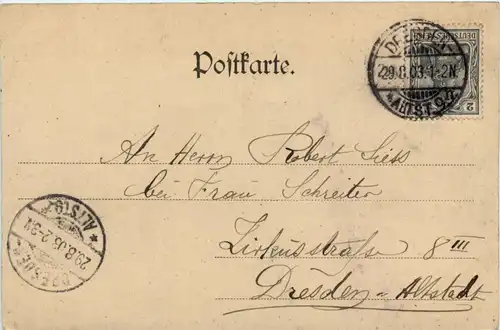 Postkarte.
DEUTSCHES REICH
2
DRESDEN
29.8.03.1-2N
*ALTST.
An Herrn Robert Liess
bei Frau Schreiter
Zirkusstraße 8 III
Dresden-Altstadt
DRESDEN-
29.8.03.2-3N
*ALTST.